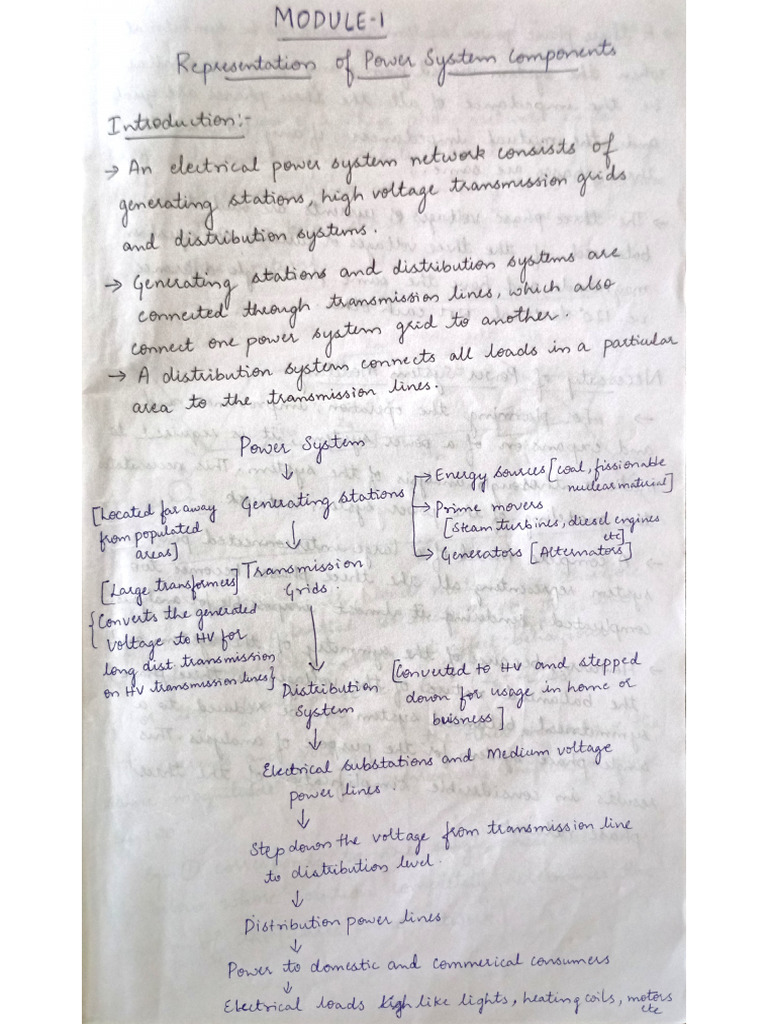 MODULE-1
Representation of Power System Components
Introduction:-
→ An electrical power system network consists of
generating stations, high voltage transmission grids
and distribution systems.
→ Generating stations and distribution systems are
connected through transmission lines, which also
connect one power system grid to another.
→ A distribution system connects all loads in a particular
area to the transmission lines.
Power System
↓
[Located far away
from populated
areas]
Generating stations
→ Energy sources [coal, fissionable
nuclear material]
→ Prime movers
[Steam turbines, diesel engines
etc]
→ Generators [Alternators]
↓
[Large transformers]
{Converts the generated
voltage to HV for
long dist transmission
on HV transmission lines]
Transmission
Grids.
↓
Distribution
System
[Converted to HV and stepped
down for usage in home or
buisness]
↓
Electrical substations and Medium voltage
power lines.
↓
Step down the voltage from transmission line
to distribution level.
↓
Distribution power lines
↓
Power to domestic and commerical consumers
↓
Electrical loads like lights, heating coils, motors
etc